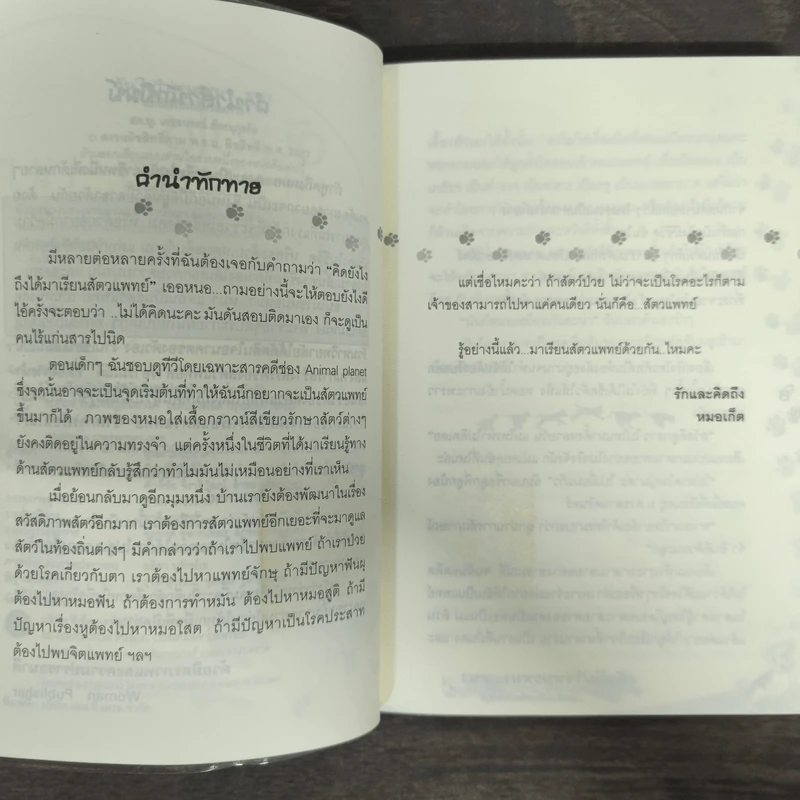 คำนำทักทาย
มีหลายต่อหลายครั้งที่ฉันต้องเจอกับคำถามว่า “คิดยังไง
ถึงได้มาเรียนสัตวแพทย์” เออหนอ...ถามอย่างนี้จะให้ตอบยังไงดี
ไอ้ครั้งจะตอบว่า ..ไม่ได้คิดนะคะ มันดันสอบติดมาเอง ก็จะดูเป็น
คนไร้แก่นสารไปนิด
ตอนเด็กๆ ฉันชอบดูทีวีโดยเฉพาะสารคดีช่อง Animal planet
ซึ่งจุดนั้นอาจจะเป็นจุดเริ่มต้นที่ทำให้ฉันนึกอยากจะเป็นสัตวแพทย์
ขึ้นมาก็ได้ ภาพของหมอใส่เสื้อกราวน์สีเขียวรักษาสัตว์ต่างๆ
ยังคงติดอยู่ในความทรงจำ แต่ครั้งหนึ่งในชีวิตที่ได้มาเรียนรู้ทาง
ด้านสัตวแพทย์กลับรู้สึกว่าทำไมมันไม่เหมือนอย่างที่เราเห็น
เมื่อย้อนกลับมาดูอีกมุมหนึ่ง บ้านเรายังต้องพัฒนาในเรื่อง
สวัสดิภาพสัตว์อีกมาก เราต้องการสัตวแพทย์อีกเยอะที่จะมาดูแล
สัตว์ในท้องถิ่นต่างๆ มีคำกล่าวว่าถ้าเราไปพบแพทย์ ถ้าเราป่วย
ด้วยโรคเกี่ยวกับตา เราต้องไปหาแพทย์จักษุ ถ้ามีปัญหาฟันผุ
ต้องไปหาหมอฟัน ถ้าต้องการทำหมัน ต้องไปหาหมอสูติ ถ้ามี
ปัญหาเรื่องหูต้องไปหาหมอโสต ถ้ามีปัญหาเป็นโรคประสาท
ต้องไปพบจิตแพทย์ ฯลฯ
แต่เชื่อไหมคะว่า ถ้าสัตว์ป่วย ไม่ว่าจะเป็นโรคอะไรก็ตาม
เจ้าของสามารถไปหาแค่คนเดียว นั่นก็คือ...สัตวแพทย์
รู้อย่างนี้แล้ว...มาเรียนสัตวแพทย์ด้วยกัน..ไหมคะ
รักและคิดถึง
หมอเก็ต